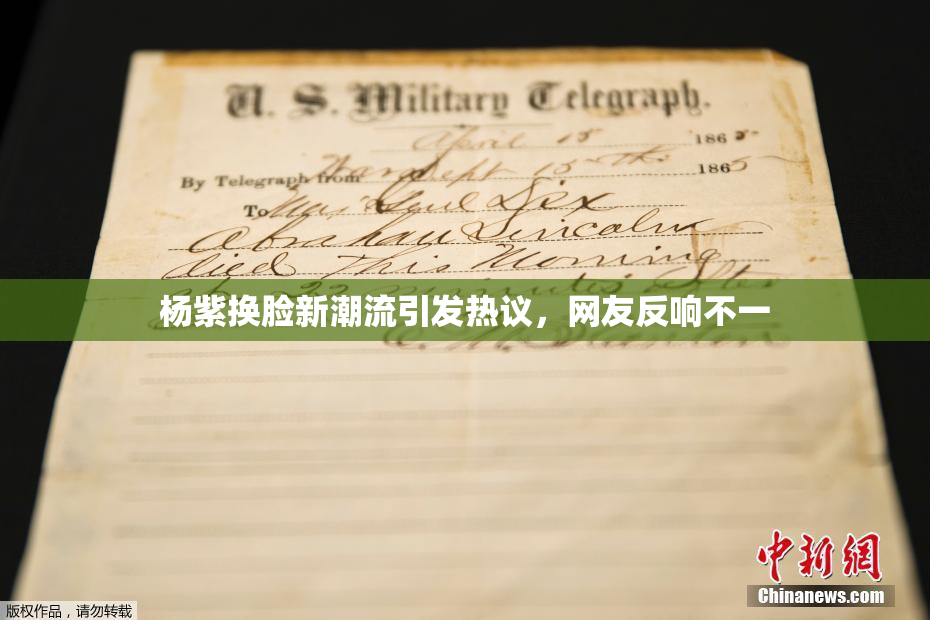 U. S. Military Telegraph.
April 15 1865
By Telegraph from War Dept 15th 1865
To Maj Genl Dix
Abraham Lincoln
died This Morning
at 22 minutes after
杨紫换脸新潮流引发热议，网友反响不一
E. M. Stanton
中新網
Chinanews.com
版权作品，请勿转载